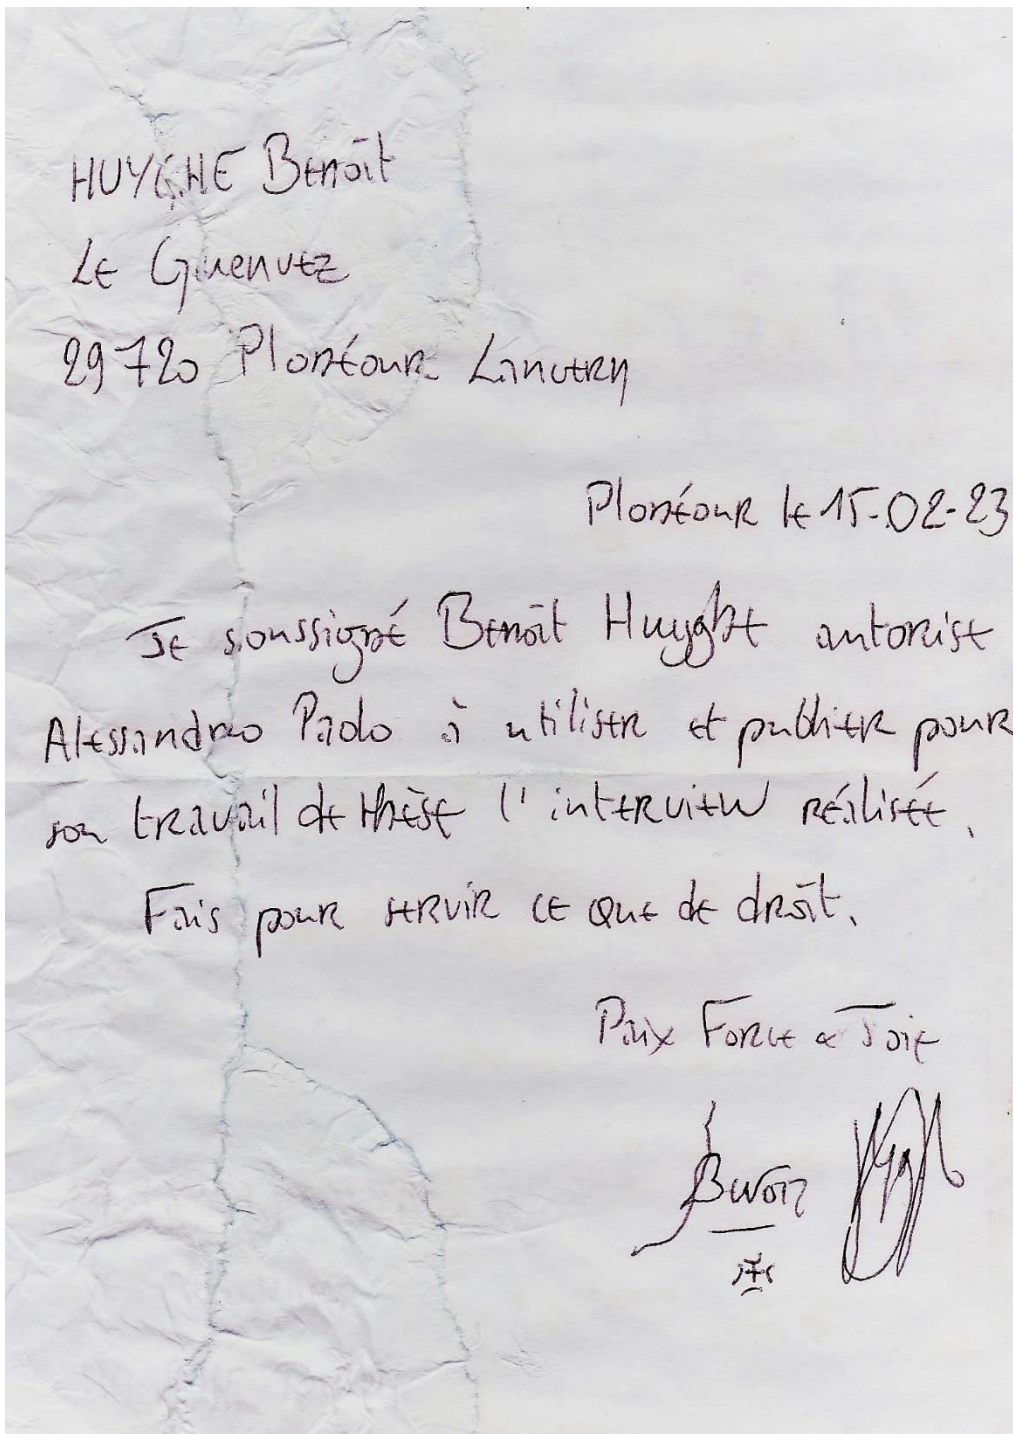 HUYGHE Benoît
Le Guenvez
29720 Plonéour Lanvern
Plonéour le 15-02-23
Je soussigné Benoît Huyghe autorise
Alessandro Paolo à utiliser et publier pour
son travail de thèse l'interview réalisée.
Fais pour servir ce que de droit.
Paix Force & Joie